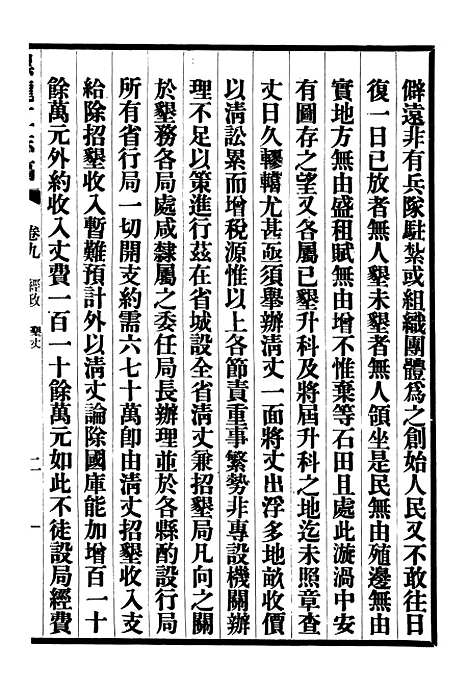 僻遠非有兵隊駐紮或組織團體爲之創始人民又不敢往日
復一日已放者無人墾未墾者無人領坐是民無由殖邊無由
實地方無由盛租賦無由增不惟棄等石田且處此漩渦中安
有圖存之望又各屬已墾升科及將屆升科之地迄未照章查
丈日久轇轕尤甚亟須舉辦清丈一面將丈出浮多地畝收價
以清訟累而增税源惟以上各節責重事繁勢非專設機關辦
理不足以策進行茲在省城設全省清丈兼招墾局凡向之關
於墾務各局處咸隸屬之委任局長辦理並於各縣酌設行局
所有省行局一切開支約需六七十萬卽由清丈招墾收入支
給除招墾收入暫難預計外以清丈論除國庫能加增百一十
餘萬元外約收入丈費一百一十餘萬元如此不徒設局經費
卷九 經政 墾丈